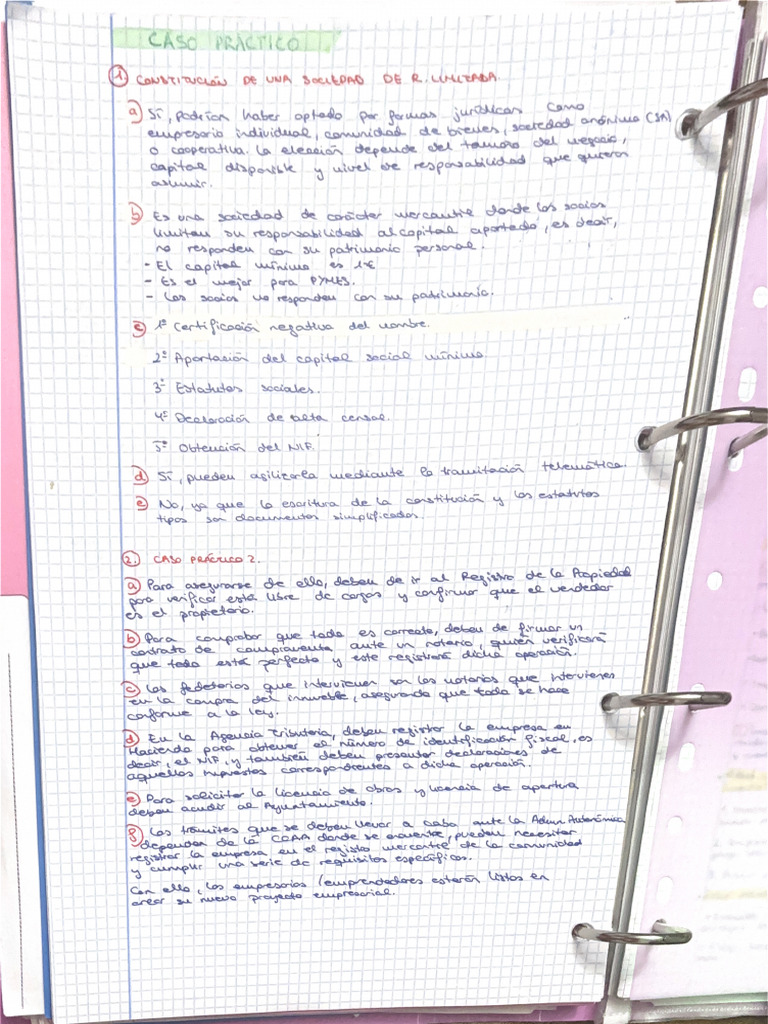 CASO PRÁCTICO
1 CONSTITUCIÓN DE UNA SOCIEDAD DE R. LIMITADA.
a) Sí, podrían haber optado por formas jurídicas como
empresario individual, comunidad de bienes, sociedad anónima (SA)
o cooperativa. La elección depende del tamaño del negocio,
capital disponible y nivel de responsabilidad que quieran
asumir.
b) Es una sociedad de carácter mercantil donde los socios
limitan su responsabilidad al capital aportado, es decir,
no responden con su patrimonio personal.
- El capital mínimo es 1€
- Es el mejor para PYMES.
- Los socios no responden con su patrimonio.
c) 1º Certificación negativa del nombre.
2º Aportación del capital social mínimo
3º Estatutos sociales.
4º Declaración de alta censal.
5º Obtención del NIF.
d) Sí, pueden agilizarla mediante la tramitación telemática.
e) No, ya que la escritura de la constitución y los estatutos
tipos son documentos simplificados.
2. CASO PRÁCTICO 2.
a) Para asegurarse de ello, deben de ir al Registro de la Propiedad
para verificar está libre de cargas y confirmar que el vendedor
es el propietario.
b) Para comprobar que todo es correcto, deben de firmar un
contrato de compraventa ante un notario, quién verificará
que todo está perfecto y este registrará dicha operación.
c) Los fedetarios que intervienen son los notarios que intervienen
en la compra del inmueble, asegurando que todo se hace
conforme a la ley.
d) En la Agencia Tributaria, deben registrar la empresa en
Hacienda para obtener el número de identificación fiscal, es
decir, el NIF, y también deben presentar declaraciones de
aquellos impuestos correspondientes a dicha operación.
e) Para solicitar la licencia de obras y licencia de apertura
deben acudir al Ayuntamiento.
f) Los trámites que se deben llevar a cabo ante la Admn. Autonómica
dependen de la CCAA donde se encuentre, pueden necesitar
registrar la empresa en el registro mercantil de la comunidad
y cumplir una serie de requisitos específicos.
Con ello, los empresarios / emprendedores estarán listos en
crear su nuevo proyecto empresarial.